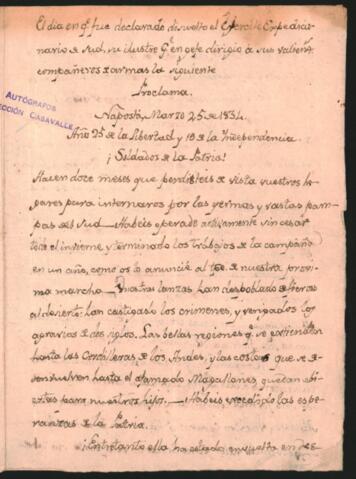 El dia en q.e fue declarado disuelto el Ejercito Espedicio-
nario de Sud, su ilustre G.l en gefe dirigio a sus valientes
compañeros de armas la siguiente
Proclama.
AUTÓGRAFOS
CCIÓN CASAVALLE
Naposta, Marzo 25 de 1834.
Año 25 de la Libertad y 19 de la Independencia.
¡Soldados de la Patria!
Hacen doce meses que perdisteis de vista vuestros ho-
gares para internaros por las yermas y vastas pam-
pas del Sud — Habeis operado activamente sin cesar
todo el invierno y terminado los trabajos de la campaña
en un año, como os lo anuncié al de nuestra
marcha — Vuestras lanzas han despoblado de fieras
el desierto: han castigado los crimenes, y vengados los
agravios de dos siglos. Las bellas regiones q.e se extienden
hasta las Cordilleras de los Andes, y las costas que se de-
senvuelven hasta el afamado Magallanes, quedan abi-
ertas para nuestros hijos. — Habeis excedido las espe-
ranzas de la Patria.
¡Entretanto ella ha estado envuelta en